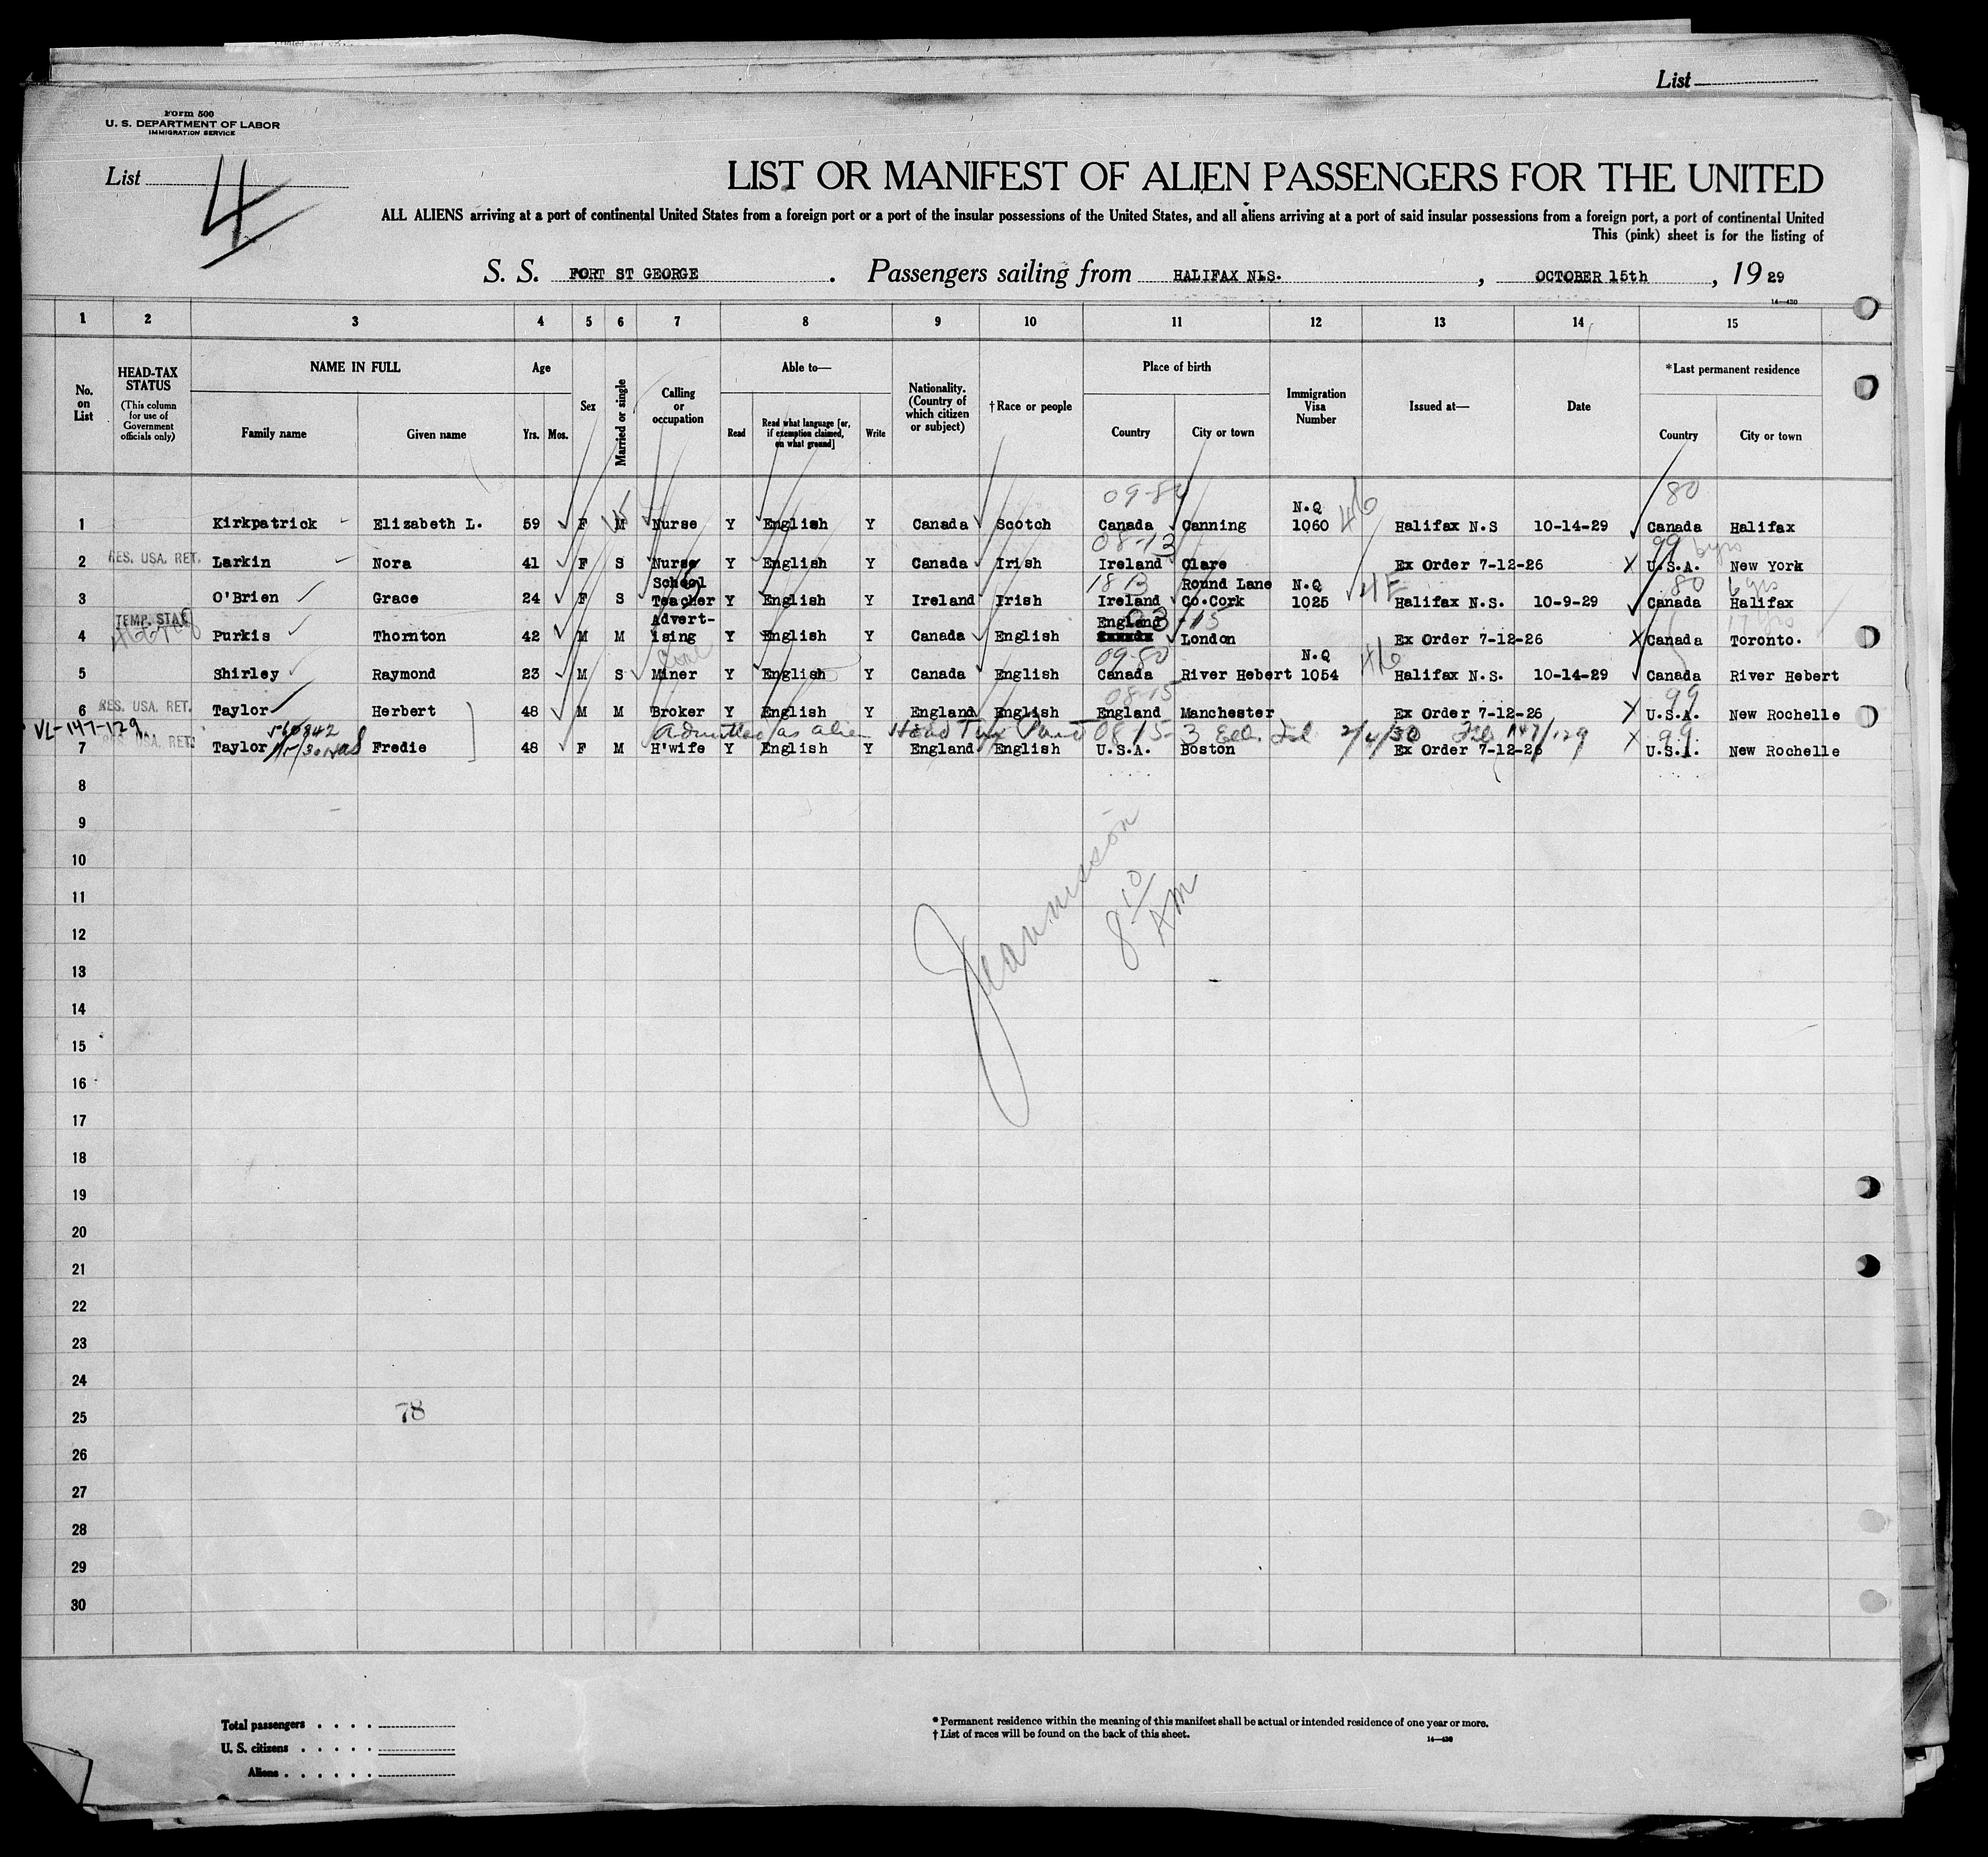 List
Form 500
U. S. DEPARTMENT OF LABOR
IMMIGRATION SERVICE
List 4
LIST OR MANIFEST OF ALIEN PASSENGERS FOR THE UNITED
ALL ALIENS arriving at a port of continental United States from a foreign port or a port of the insular possessions of the United States, and all aliens arriving at a port of said insular possessions from a foreign port, a port of continental United
This (pink) sheet is for the listing of
S. S. FORT ST GEORGE . Passengers sailing from HALIFAX N.S. , OCTOBER 15th , 19 29
14—430
1 2 3 4 5 6 7 8 9 10 11 12 13 14 15
No. on List
HEAD-TAX STATUS (This column for use of Government officials only)
NAME IN FULL
Family name Given name
Age
Yrs. Mos.
Sex
Married or single
Calling or occupation
Able to—
Read Read what language [or, if exemption claimed, on what ground] Write
Nationality. (Country of which citizen or subject)
† Race or people
Place of birth
Country City or town
Immigration Visa Number
Issued at—
Date
*Last permanent residence
Country City or town
09-80 N.Q 46 80
1 Kirkpatrick Elizabeth L. 59 F M Nurse Y English Y Canada Scotch Canada Canning 1060 Halifax N.S 10-14-29 Canada Halifax
08-13 99 6 yrs
2 RES. USA. RET. Larkin Nora 41 F S Nurse Y English Y Canada Irish Ireland Clare Ex Order 7-12-26 X U.S.A. New York
School 18 13 Round Lane N.Q 4E 80 6 yrs
3 O'Brien Grace 24 F S Teacher Y English Y Ireland Irish Ireland Co.Cork 1025 Halifax N.S. 10-9-29 Canada Halifax
TEMP. STAY Advert- England -15 17 yrs
4 Purkis Thornton 42 M M ising Y English Y Canada English London Ex Order 7-12-26 X Canada Toronto.
Coal 09-80 N.Q 46
5 Shirley Raymond 23 M S Miner Y English Y Canada English Canada River Hebert 1054 Halifax N.S. 10-14-29 Canada River Hebert
08-15 99
6 RES. USA. RET. Taylor Herbert 48 M M Broker Y English Y England English England Manchester Ex Order 7-12-26 X U.S.A. New Rochelle
VL-147-129 Admitted as alien Head Tax Paid 08 15-3 2/4/30 147/129 99
7 RES. USA. RET. Taylor Fredie 48 F M H'wife Y English Y England English U.S.A. Boston Ex Order 7-12-26 X U.S.A. New Rochelle
8
9
10
11
8 10 AM
12
13
14
15
16
17
18
19
20
21
22
23
24
25 78
26
27
28
29
30
Total passengers . . . .
U. S. citizens . . . . .
Aliens . . . . . .
* Permanent residence within the meaning of this manifest shall be actual or intended residence of one year or more.
† List of races will be found on the back of this sheet.
14—430